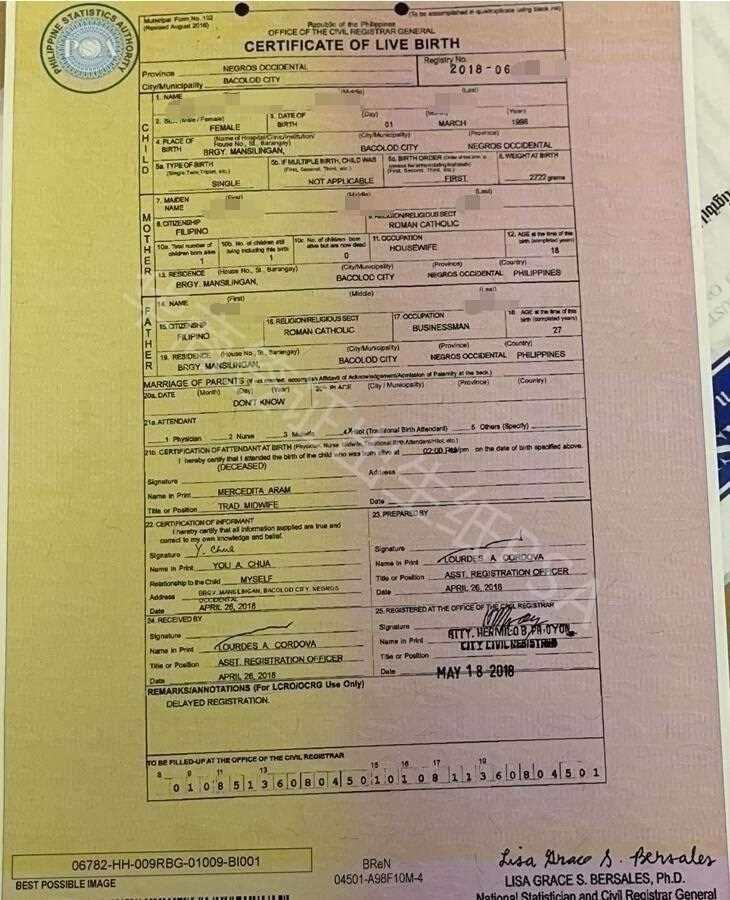 PHILIPPINE STATISTICS AUTHORITY
PSA
Municipal Form No. 102
(Revised August 2016)
(To be accomplished in quadruplicate using black ink)
Republic of the Philippines
OFFICE OF THE CIVIL REGISTRAR GENERAL
CERTIFICATE OF LIVE BIRTH
Province NEGROS OCCIDENTAL
City/Municipality BACOLOD CITY
Registry No.
2018-06
CHILD
1. NAME (Middle) (Last)
2. (Male / Female) FEMALE
3. DATE OF BIRTH (Day) (Month) (Year)
01 MARCH
4. PLACE OF BIRTH (Name of Hospital/Clinic/Institution/ House No., St., Barangay) (City/Municipality) (Province)
BRGY. MANSILINGAN, BACOLOD CITY NEGROS OCCIDENTAL
5a. TYPE OF BIRTH (Single, Twin, Triplet, etc.) SINGLE
5b. IF MULTIPLE BIRTH, CHILD WAS (First, Second, Third, etc.) NOT APPLICABLE
5c. BIRTH ORDER (First, Second, Third, etc.) FIRST
6. WEIGHT AT BIRTH 2722 grams
MOTHER
7. MAIDEN NAME (First) (Middle) (Last)
8. CITIZENSHIP FILIPINO
9. RELIGION/RELIGIOUS SECT ROMAN CATHOLIC
10a. Total number of children born alive 1
10b. No. of children still living including this birth 1
10c. No. of children born alive but are now dead 0
11. OCCUPATION HOUSEWIFE
12. AGE at the time of this birth (completed years) 18
13. RESIDENCE (House No., St., Barangay) (City/Municipality) (Province) (Country)
BRGY. MANSILINGAN, BACOLOD CITY NEGROS OCCIDENTAL PHILIPPINES
FATHER
14. NAME (First) (Middle) (Last)
15. CITIZENSHIP FILIPINO
16. RELIGION/RELIGIOUS SECT ROMAN CATHOLIC
17. OCCUPATION BUSINESSMAN
18. AGE at the time of this birth (completed years) 27
19. RESIDENCE (House No., St., Barangay) (City/Municipality) (Province) (Country)
BRGY MANSILINGAN, BACOLOD CITY NEGROS OCCIDENTAL PHILIPPINES
MARRIAGE OF PARENTS (If not married, accomplish Affidavit of Acknowledgement/Admission of Paternity at the back.)
20a. DATE (Month) (Day) (Year) 20b. PLACE (City / Municipality) (Province) (Country)
DON'T KNOW
21a. ATTENDANT
1 Physician 2 Nurse 3 Midwife 4 X Hilot (Traditional Birth Attendant) 5 Others (Specify)
21b. CERTIFICATION OF ATTENDANT AT BIRTH (Physician, Nurse, Midwife, Traditional Birth Attendant/Hilot, etc.)
I hereby certify that I attended the birth of the child who was born alive at 02:00 PM am/pm on the date of birth specified above.
(DECEASED)
Signature Address
Name in Print MERCEDITA ARAM
Title or Position TRAD. MIDWIFE Date
22. CERTIFICATION OF INFORMANT
I hereby certify that all information supplied are true and
correct to my own knowledge and belief.
Signature Y. Chua
Name in Print YOLI A. CHUA
Relationship to the Child MYSELF
Address BRGY. MANSILINGAN, BACOLOD CITY, NEGROS
OCCIDENTAL
Date APRIL 26, 2018
23. PREPARED BY
Signature
Name in Print LOURDES A. CORDOVA
Title or Position ASST. REGISTRATION OFFICER
Date APRIL 26, 2018
24. RECEIVED BY
Signature
Name in Print LOURDES A. CORDOVA
Title or Position ASST. REGISTRATION OFFICER
Date APRIL 26, 2018
25. REGISTERED AT THE OFFICE OF THE CIVIL REGISTRAR
Signature
Name in Print ATTY. HERMILO B.
Title or Position CITY CIVIL REGISTRAR
Date MAY 18 2018
REMARKS/ANNOTATIONS (For LCRO/OCRG Use Only)
DELAYED REGISTRATION.
TO BE FILLED-UP AT THE OFFICE OF THE CIVIL REGISTRAR
8 9 11 13 15 16 17 19
0 1 0 8 5 1 3 6 0 8 0 4 5 0 1 0 1 0 8 1 1 3 6 0 8 0 4 5 0 1
06782-HH-009RBG-01009-BI001
BEST POSSIBLE IMAGE
BReN
04501-A98F10M-4
Lisa Grace S. Bersales
LISA GRACE S. BERSALES, Ph.D.
National Statistician and Civil Registrar General